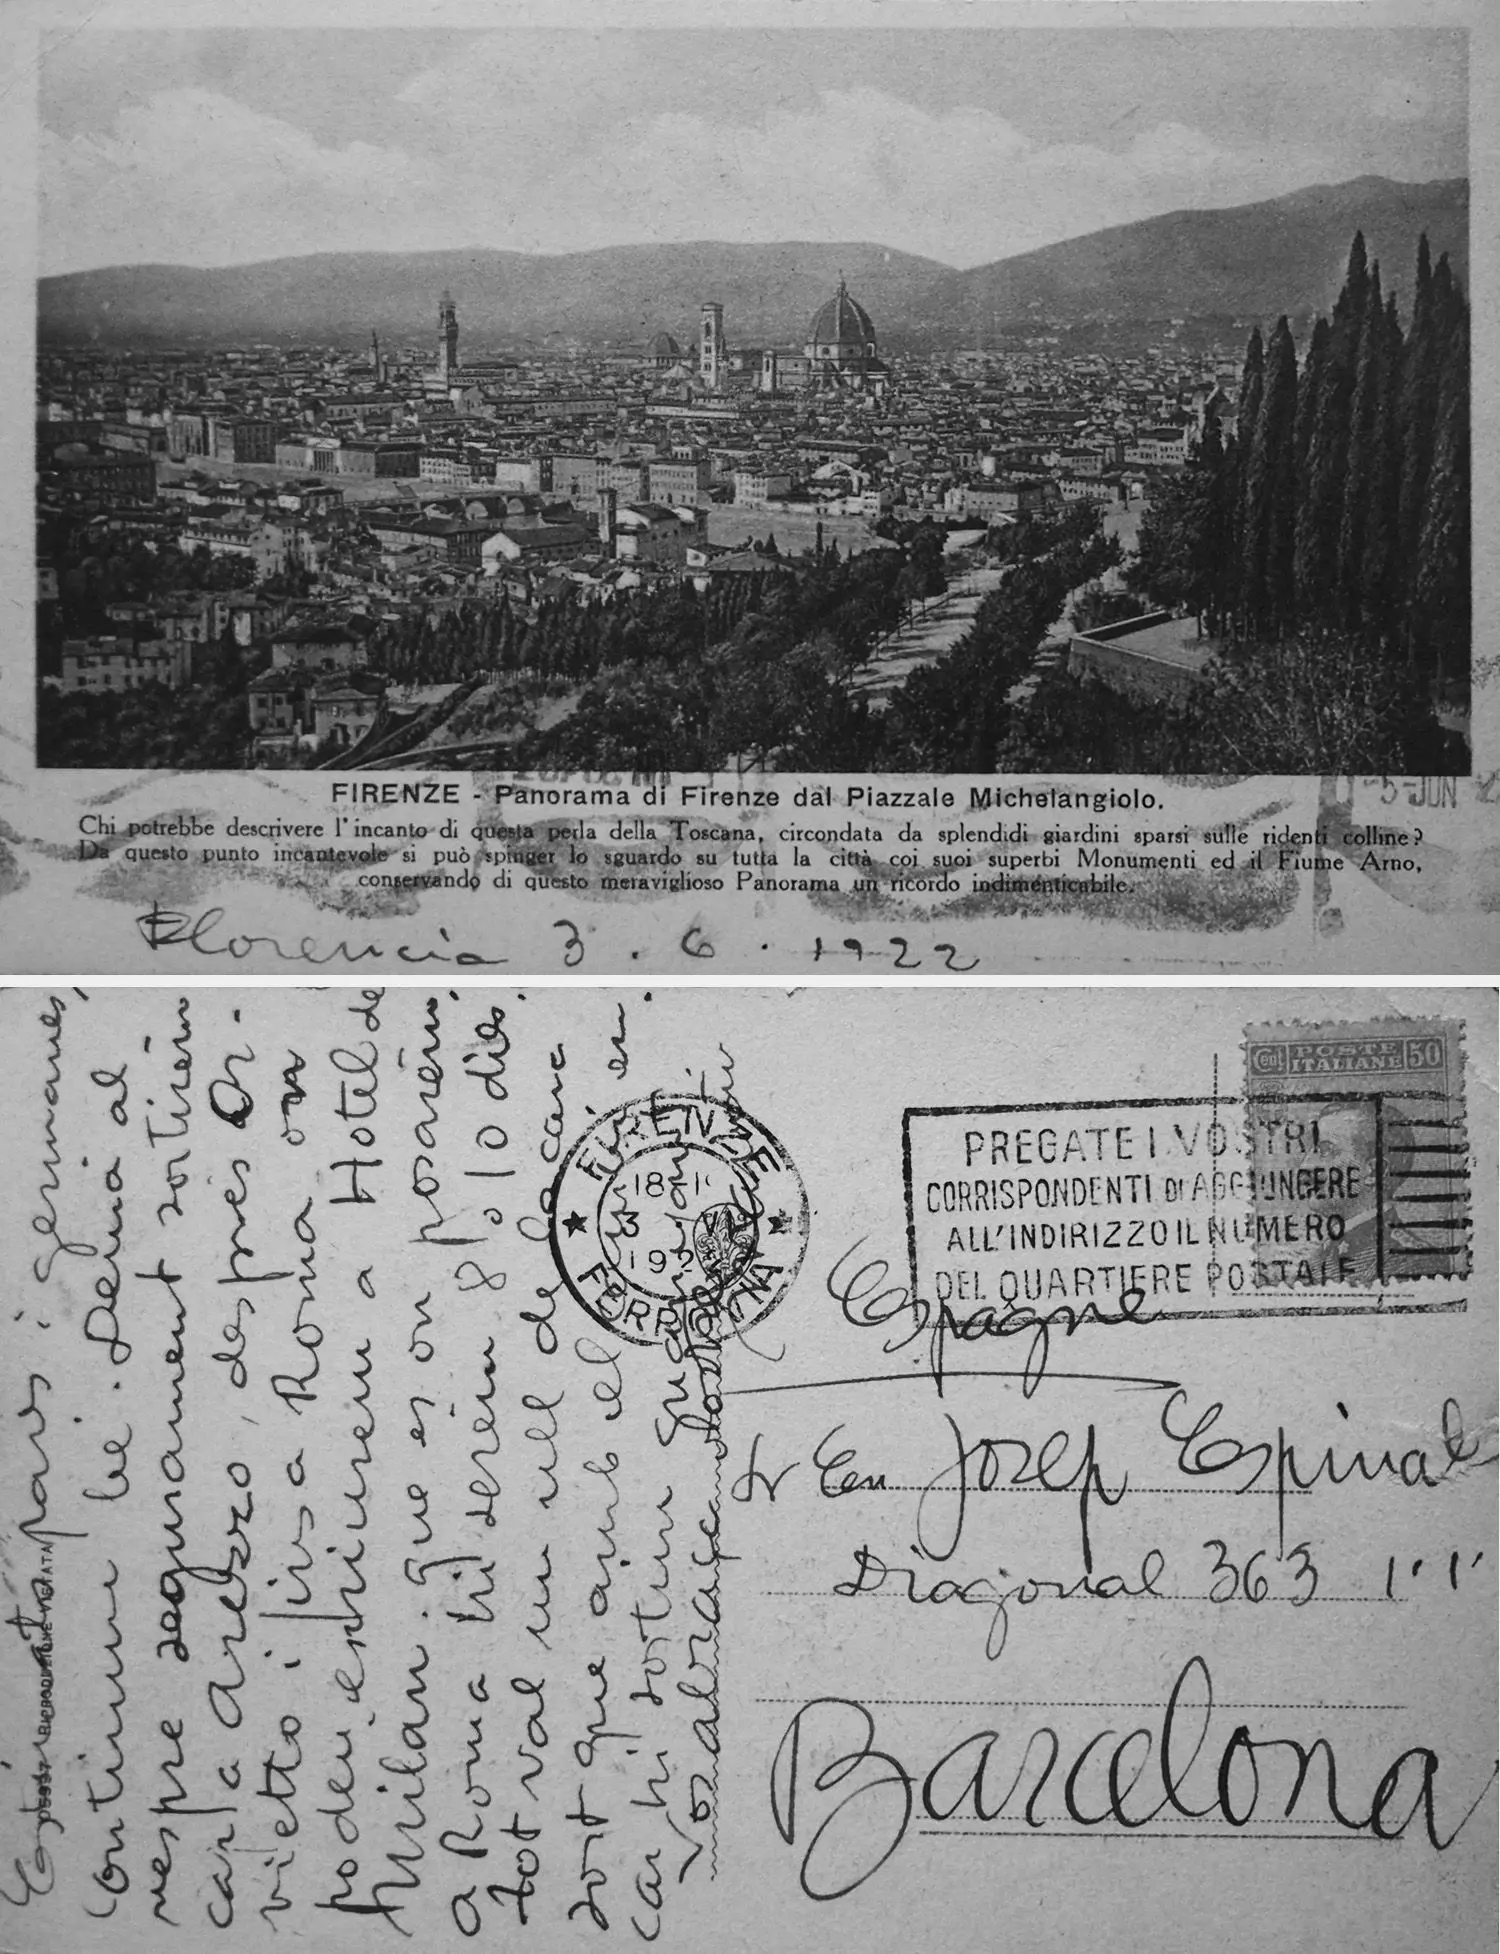 FIRENZE - Panorama di Firenze dal Piazzale Michelangiolo.
Chi potrebbe descrivere l'incanto di questa perla della Toscana, circondata da splendidi giardini sparsi sulle ridenti colline?
Da questo punto incantevole si può spinger lo sguardo su tutta la città coi suoi superbi Monumenti ed il Fiume Arno,
conservando di questo meraviglioso Panorama un ricordo indimenticabile.
-5-JUN
Florencia 3.6.1922
Estimats pares i germanes,
continuu bé. Demá al
vespre segurament sortirém
cap a Arezzo, després Or-
vietto i fins a Roma on
podeu escriurem a Hotel de
Milan. que es on posarém.
a Roma hi serém 8 o 10 dies.
Tot val un ull de la cara
sort que amb el en
car hi sortim
Vos abraça
Cent POSTE ITALIANE 50
PREGATE I VOSTRI
CORRISPONDENTI DI AGGIUNGERE
ALL'INDIRIZZO IL NUMERO
DEL QUARTIERE POSTALE
FIRENZE
3 VI
192
FERROVIA
Espagne
Sr En Josep Espinal
Diagonal 363 1' 1'
Barcelona